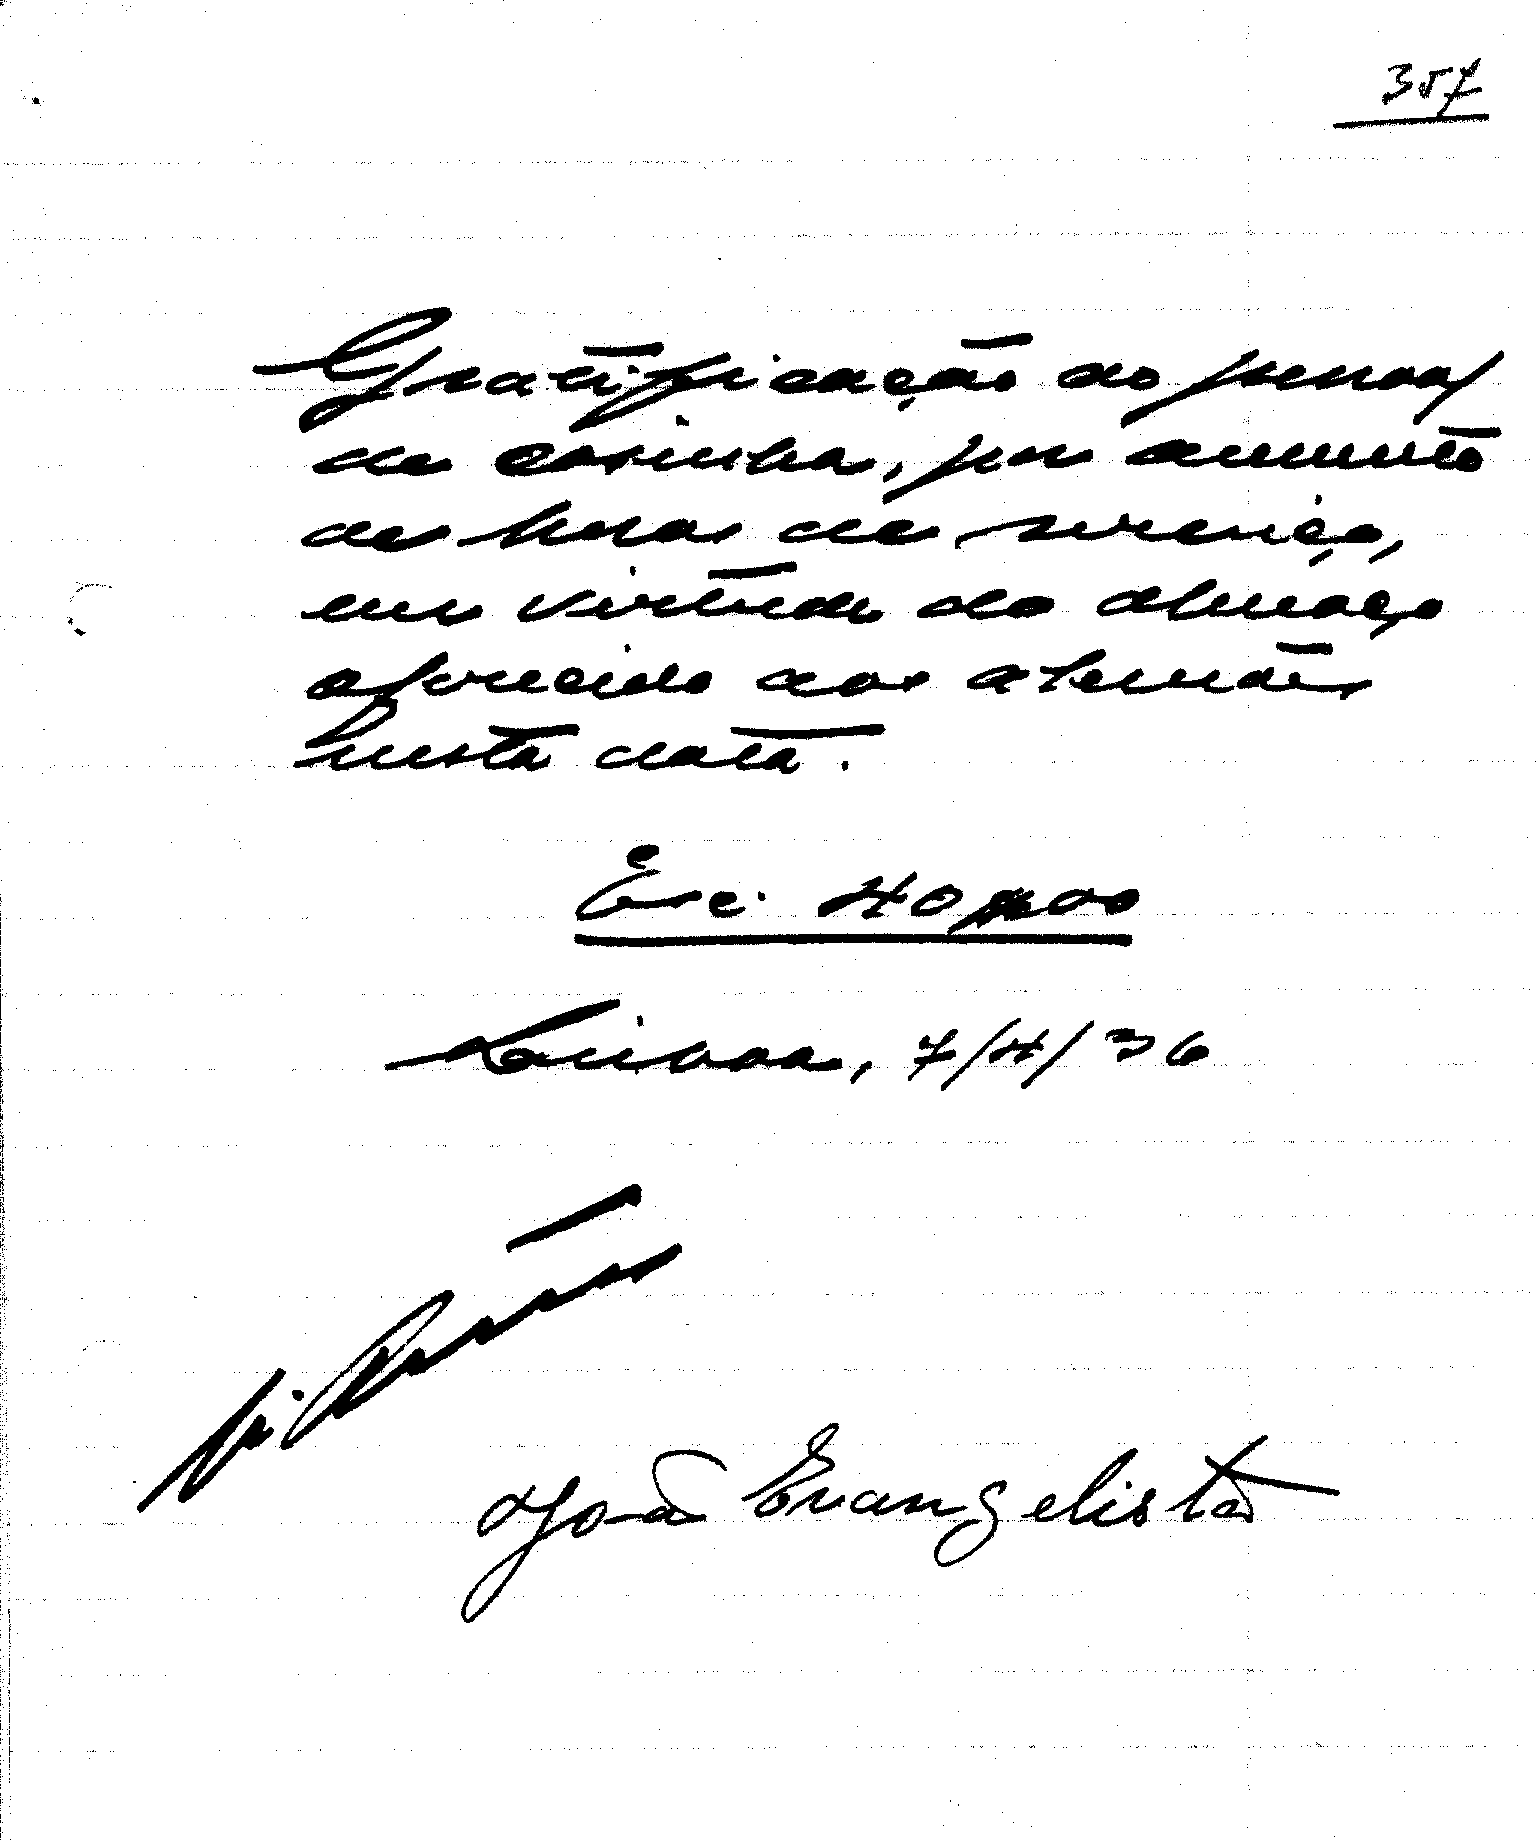 357
Gratificação ao pessoal
de cosinha, por aumento
de horas de serviço,
em virtude do almoço
oferecido aos alemães
nesta data.
Esc. 40$00
Lisboa, 7/4/36
João Evangelista